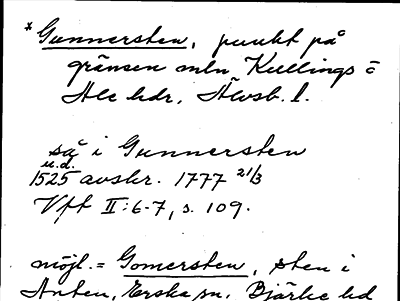 * Gunnersten, punkt på
gränsen mln Kullings o
Ale hdr, Älvsb. l.
så i Gunnersten
u.d.
1525 avskr. 1777 21/3
Vft II:6-7, s. 109.
möjl. = Gomersten, sten i
Anten, Erska sn, Bjärke hd